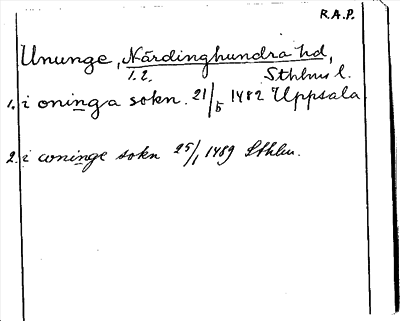 R.A.P.
Ununge, Närdinghundra hd,
1. 2.
Sthlms l.
1. i oninga sokn. 21/5 1482 Uppsala
2. i wninge sokn 25/1 1489 Sthlm.